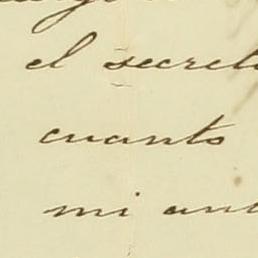 el secreto
cuanto
mi ant